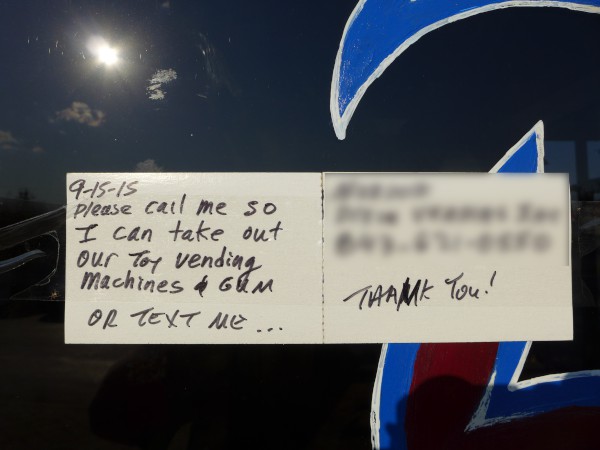 9-15-15
Please call me so
I can take out
our Toy vending
Machines & GUM
OR TEXT ME...
THANK YOU!